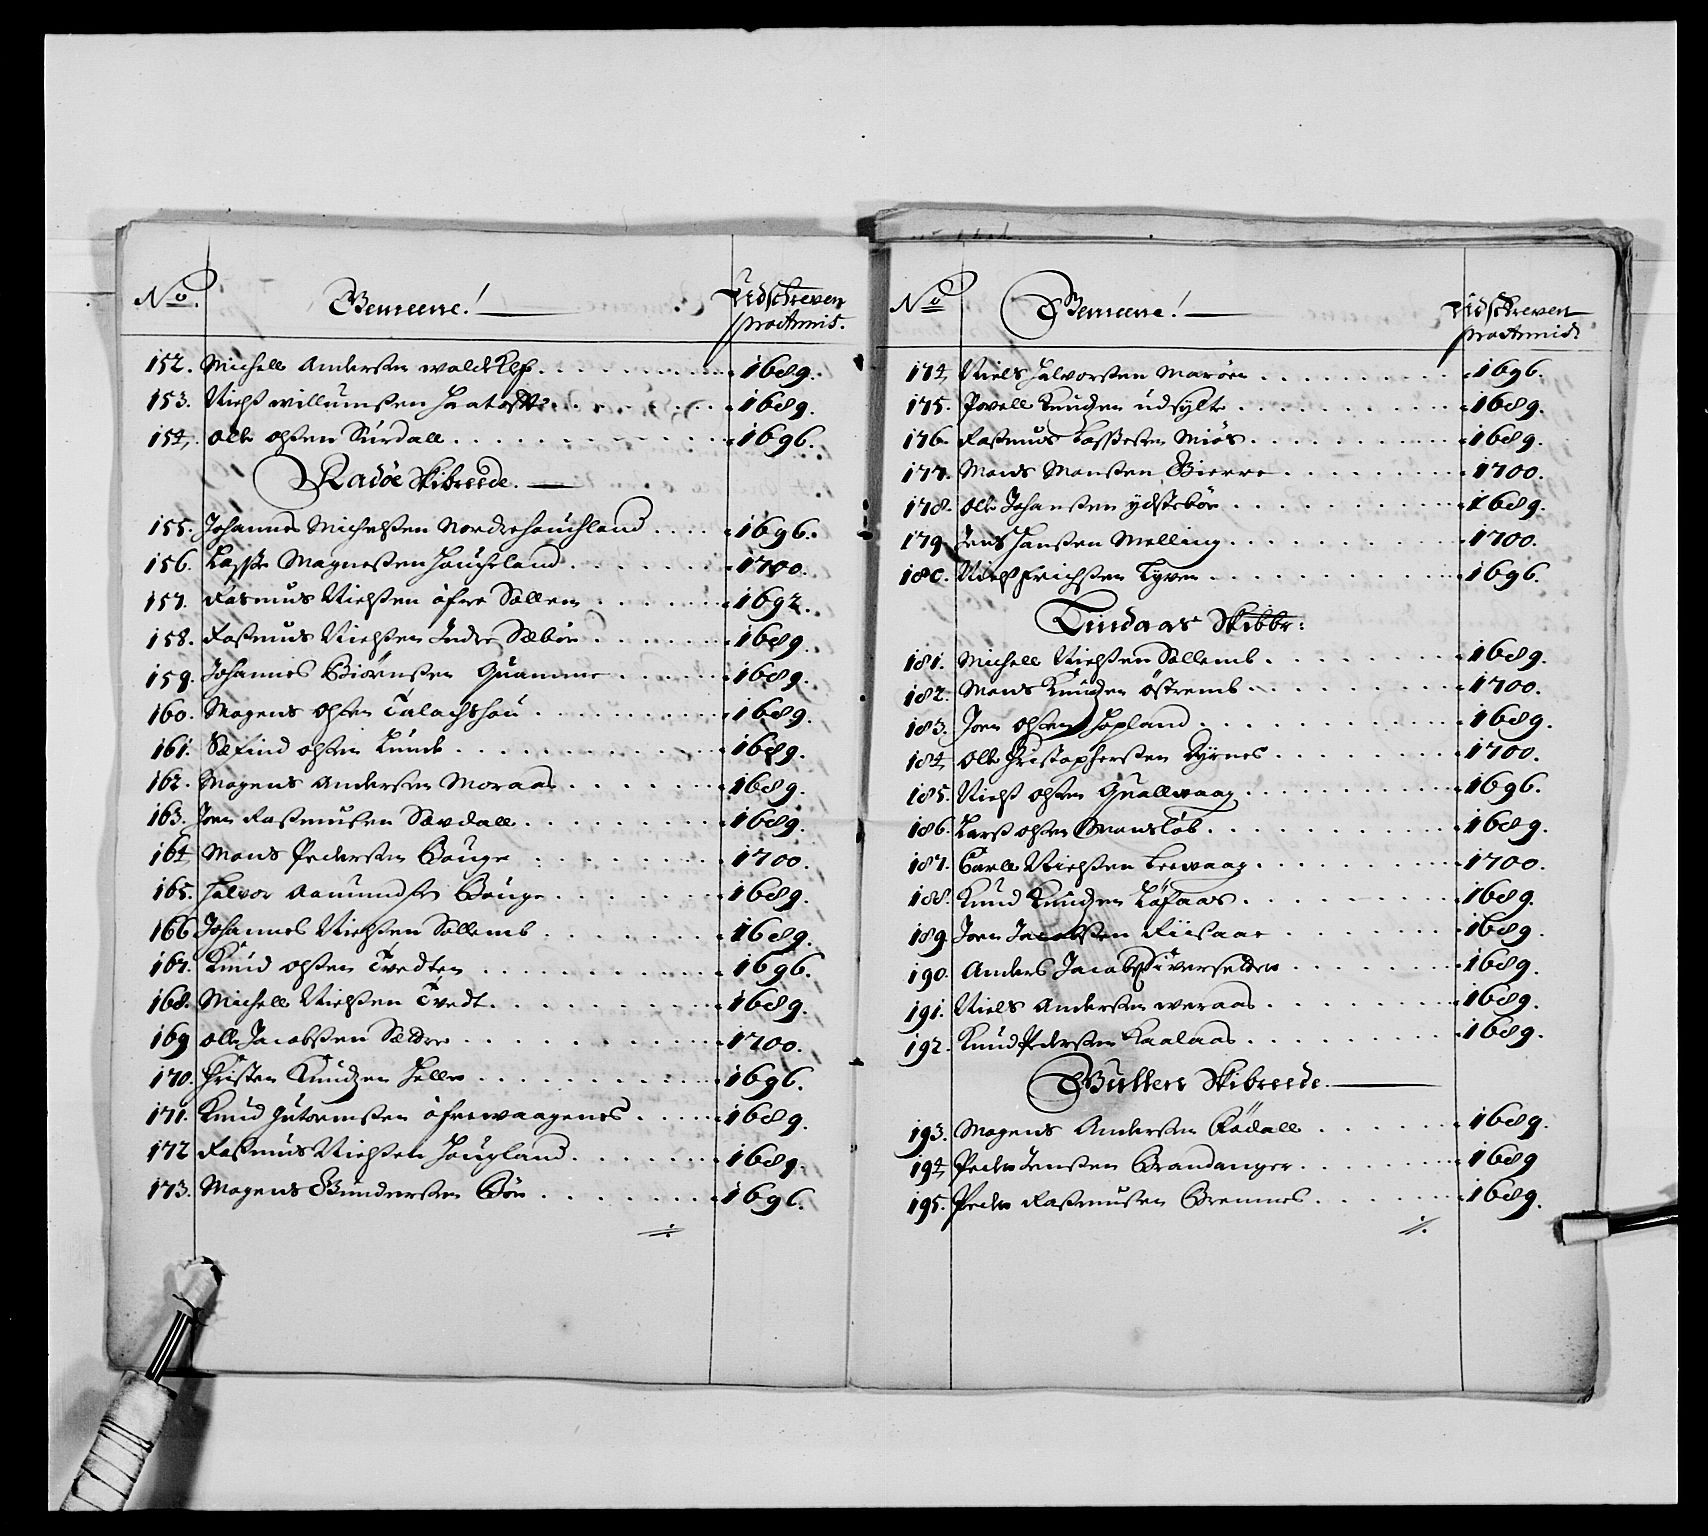 No. Gemeene! Udschreven
pro Annis.
152. Michell Andersen 1689.
153. Nielß Willumsen 1689.
154. Olle Olsen Sürdall 1696.
Radöe Skibreede.
155. Johannes Michelsen Nordrehouchland 1696.
156. Lasse Magnesen Houcheland 1700.
157. Rasmus Nielsen öfre Sollem 1692.
158. Rasmus Nielsen Indre Sæböe 1689.
159. Johannes Biörnsen Quamme 1689.
160. Mogens Olsen 1689.
161. Sæfind Olsen Lunde 1689.
162. Mogens Andersen Moraas 1689.
163. Joen Rasmusen Sævdall 1689.
164. Mons Pedersen Bouge 1700.
165. Halvor Aamunds: Bouge 1689.
166. Johannes Nielsen Sollemb 1689.
167. Knud Olsen Tvedten 1696.
168. Michell Nielsen Tvedt 1689.
169. Olle Jacobsen Sældre 1700.
170. Christen Knudzen Helle 1696.
171. Knud Gutormsen öfrewaagenes 1689.
172. Rasmus Nielsen Hougland 1689.
173. Mogens Gundersen Böe 1696.
./.
No Gemeene! Udschreven
pro Annis
174. Niels Halvorsen Maröen 1696.
175. Povell Knudsen udsylte 1689.
176. Rasmus Lassesen Miös 1689.
177. Mons Monsen Bierre 1700.
178. Olle Johansen ydsteböe 1689.
179. Jens Hansen Melling 1700.
180. Nielß Erichsen Tyven 1696.
Lindaas Skibbr:
181. Michell Nielsen Sollemb 1689.
182. Mons Knudsen Östremb 1700.
183. Joen Olsen Hopland 1689.
184. Olle Christophersen Kyrnes 1700.
185. Nielß Olsen Quallwaag 1696.
186. Lars Olsen Monsløb 1689.
187. Carll Nielsen Leewaag 1700.
188. Knud Knudsen Löfaas 1689.
189. Joen Jacobsen Fiisaae 1689.
190. Anders Jacobs: Siverselden 1689.
191. Niels Andersen weraas 1689.
192. Knud Pedersen Kaalaas 1689.
Gullen Skibreede.
193. Mogens Andersen Rödall 1689.
194. Peder Jensen Brandanger 1689
195. Peder Rasmusen Bremnes 1689.
./.